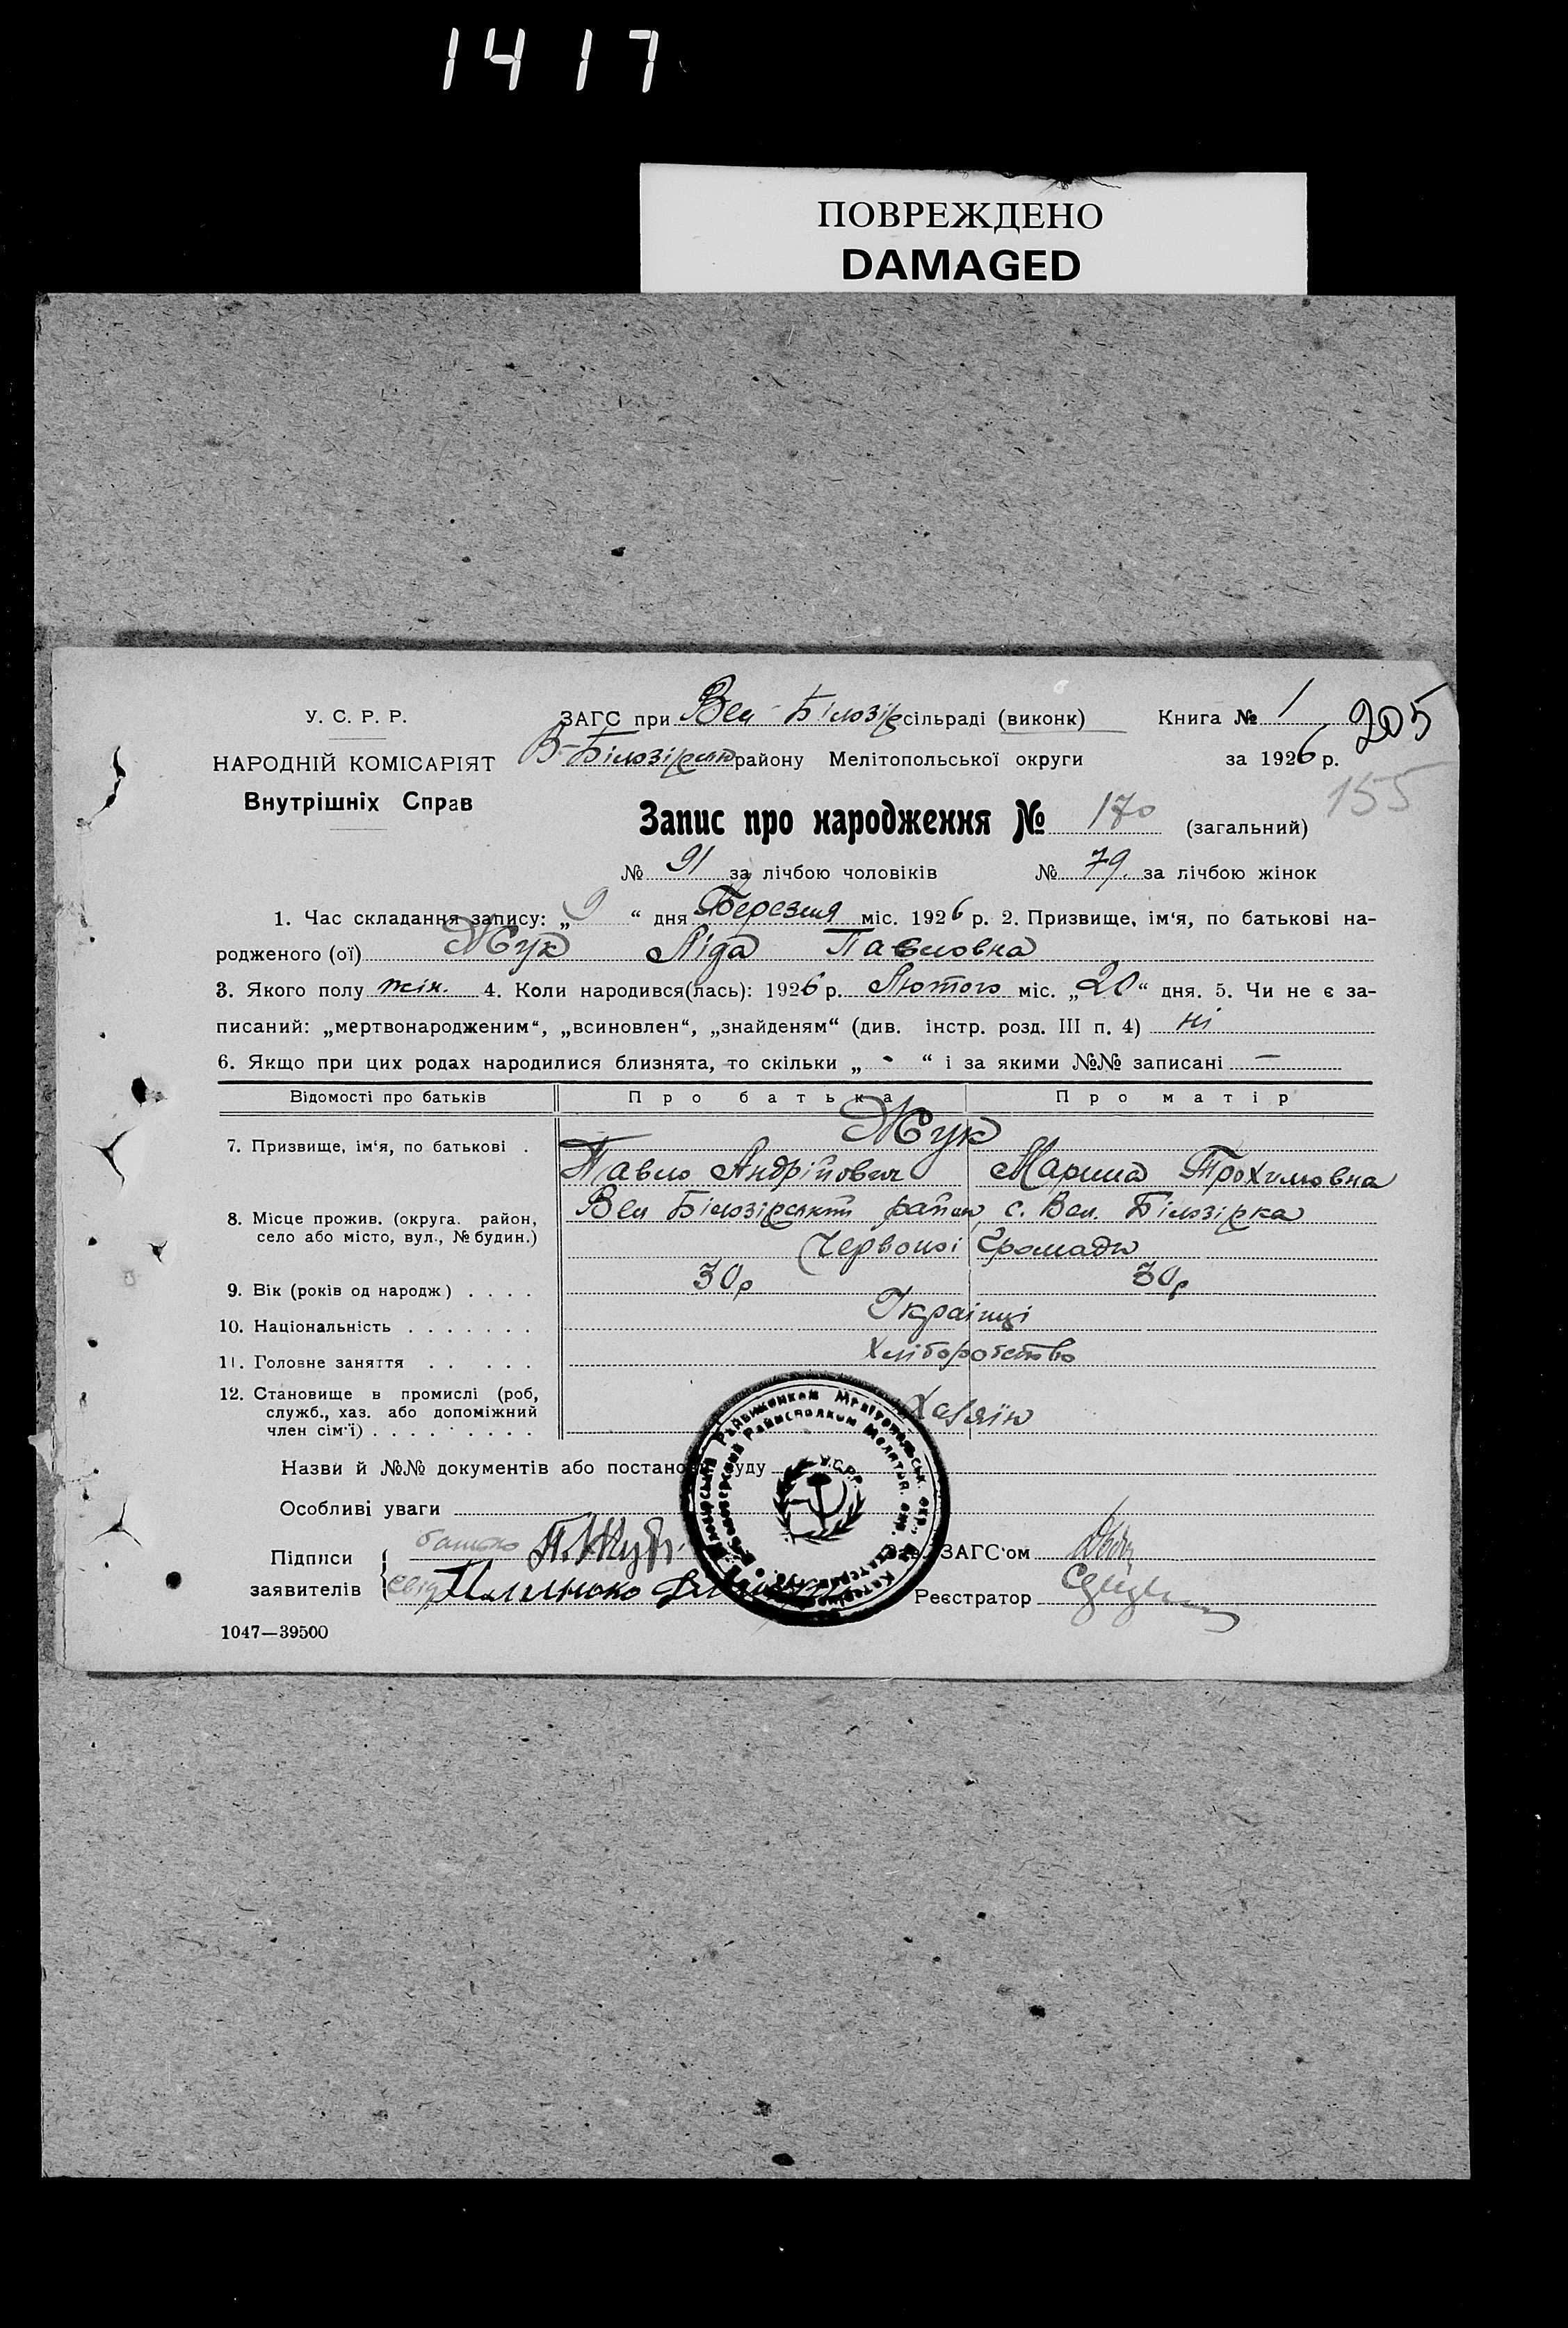 1417
ПОВРЕЖДЕНО
DAMAGED
У. С. Р. Р.
НАРОДНІЙ КОМІСАРІЯТ
Внутрішніх Справ
ЗАГС при Вел-Білозір сільраді (виконк) Книга № 1 205
В-Білозірськ району Мелітопольської округи за 1926 р.
155
Запис про народження № 170 (загальний)
№ 91 за лічбою чоловіків № 79. за лічбою жінок
1. Час складання запису: „9“ дня Березня міс. 1926 р. 2. Призвище, ім'я, по батькові на-
родженого (ої) Жук Ліда Павловна
3. Якого полу жін. 4. Коли народився(лась): 1926 р. Лютого міс. „20“ дня. 5. Чи не є за-
писаний: „мертвонародженим“, „всиновлен“, „знайденям“ (див. інстр. розд. III п. 4) ні
6. Якщо при цих родах народилися близнята, то скільки „-“ і за якими №№ записані —
Відомості про батьків Про батька Про матір
7. Призвище, ім'я, по батькові . Жук
Павло Андрійович Марина Трохимовна
8. Місце прожив. (округа. район,
село або місто, вул., № будин.)
Вел Білозірський район, с. Вел. Білозірка
Червоної Громади
9. Вік (років од народж) . . . . 30р 30р
10. Національність . . . . . . . Українці
11. Головне заняття . . . . . Хліборобство
12. Становище в промислі (роб,
служб., хаз. або допоміжний
член сім'ї) . . . . . . . . .
Хазяїн
Назви й №№ документів або постанов суду
Особливі уваги
У.С.Р.Р.
Підписи
заявителів
батько П. Жук
свід
Зав. ЗАГС'ом
Реєстратор
1047—39500